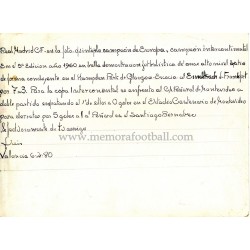 Real Madrid C.F. en la foto, quintuple campeon de Europa, campeon intercontinental
En su 5ª Edicion año 1960 en bella demostracion futbolistica de enorme alto nivel
de forma contundente en el Hampden Park de Glasgow-Escocia al Eintracht de Frankfurt
por 7-3. Para la copa Intercontinental se enfrento al C.At. Peñarol de Montevideo a
doble partido empatando el 1º de ellos a 0 goles en el Estadio Centenario de Montevideo
para derrotar por 5 goles a 1 a Peñarol en el Santiago Bernabeu
tu amigo
Luis
Valencia 6-2-80
www.memorafootball.com